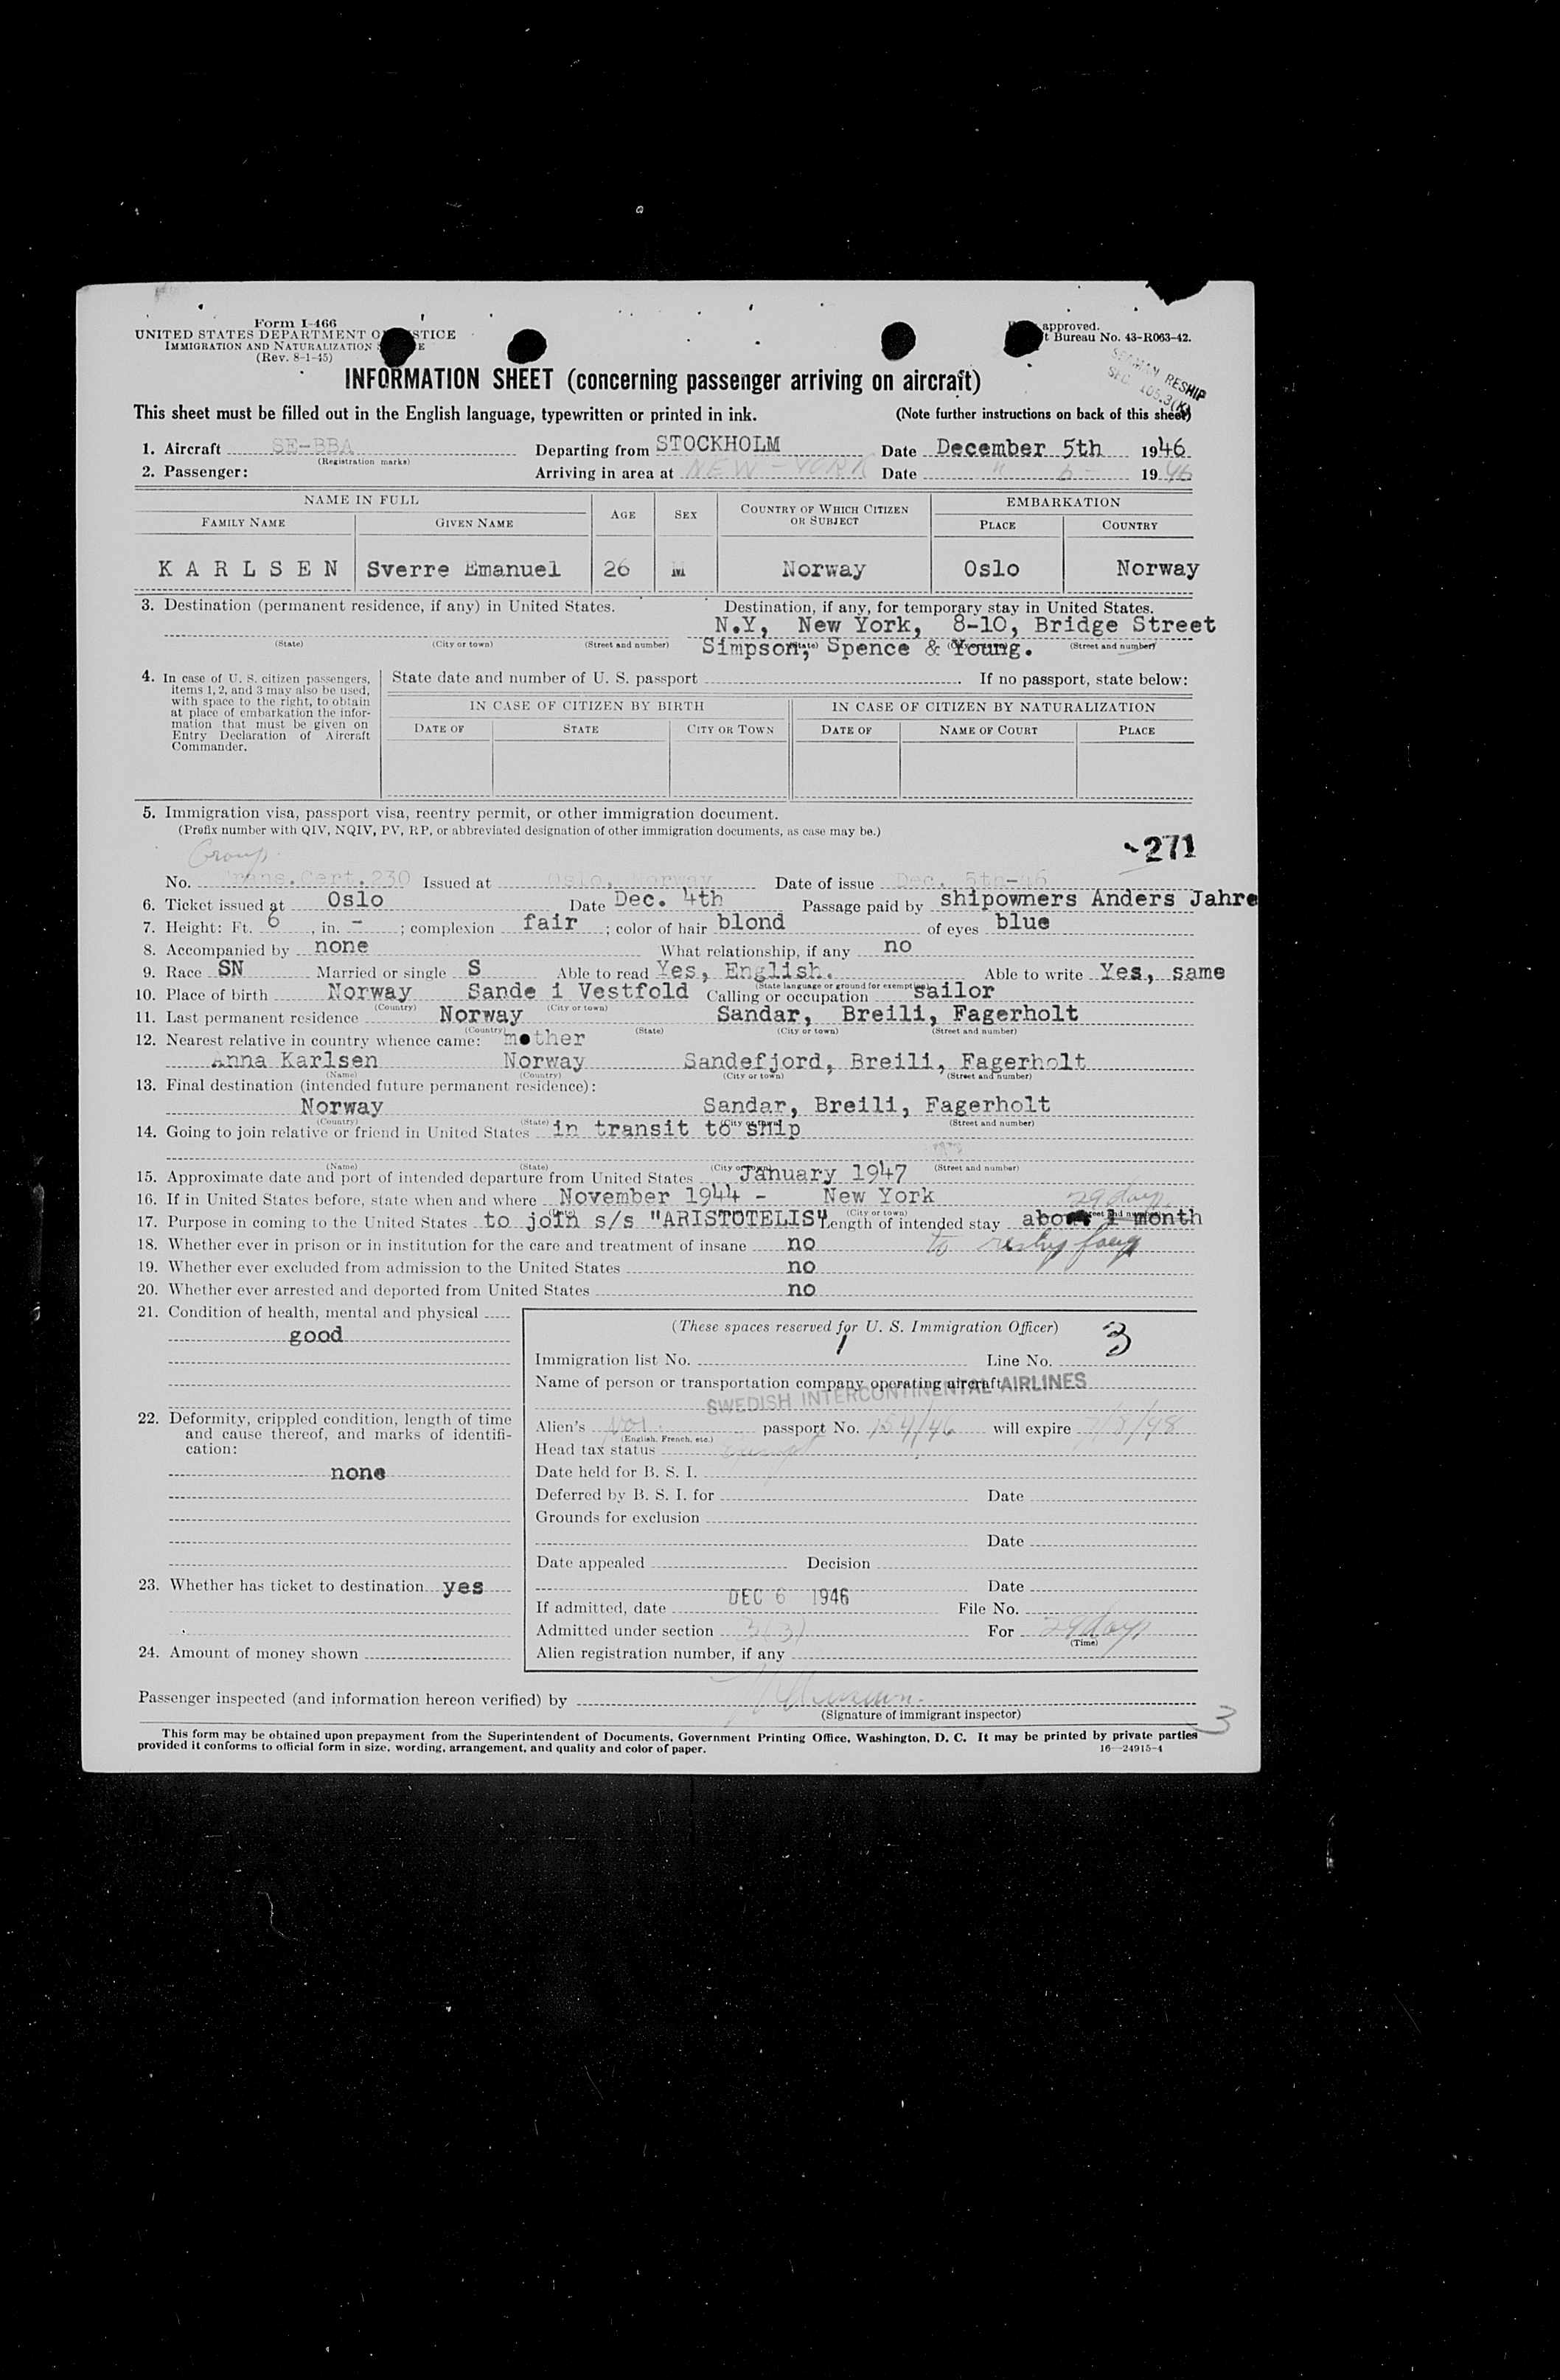 Form I-466
UNITED STATES DEPARTMENT OF JUSTICE
IMMIGRATION AND NATURALIZATION
(Rev. 8-1-45)
approved.
t Bureau No. 43-R063-42.
SEAMAN RESHIP
SEC. 105.3(K)
INFORMATION SHEET (concerning passenger arriving on aircraft)
This sheet must be filled out in the English language, typewritten or printed in ink. (Note further instructions on back of this sheet)
1. Aircraft SE-BBA Departing from STOCKHOLM Date December 5th 1946
(Registration marks)
2. Passenger: Arriving in area at NEW-YORK Date " 6- 1946
NAME IN FULL AGE SEX COUNTRY OF WHICH CITIZEN OR SUBJECT EMBARKATION
FAMILY NAME GIVEN NAME PLACE COUNTRY
KARLSEN Sverre Emanuel 26 M Norway Oslo Norway
3. Destination (permanent residence, if any) in United States. Destination, if any, for temporary stay in United States.
N.Y, New York, 8-10, Bridge Street
(State) (City or town) (Street and number) Simpson, Spence & Young. (State) (City or town) (Street and number)
4. In case of U. S. citizen passengers, items 1, 2, and 3 may also be used, with space to the right, to obtain at place of embarkation the information that must be given on Entry Declaration of Aircraft Commander.
State date and number of U. S. passport . If no passport, state below:
IN CASE OF CITIZEN BY BIRTH IN CASE OF CITIZEN BY NATURALIZATION
DATE OF STATE CITY OR TOWN DATE OF NAME OF COURT PLACE
5. Immigration visa, passport visa, reentry permit, or other immigration document.
(Prefix number with QIV, NQIV, PV, RP, or abbreviated designation of other immigration documents, as case may be.)
271
Group
No. Trans.Cert.230 Issued at Oslo, Norway Date of issue Dec. 5th-46
6. Ticket issued at Oslo Date Dec. 4th Passage paid by shipowners Anders Jahre
7. Height: Ft. 6, in. - ; complexion fair ; color of hair blond of eyes blue
8. Accompanied by none What relationship, if any no
9. Race SN Married or single S Able to read Yes, English. Able to write Yes, same
(State language or ground for exemption)
10. Place of birth Norway Sande i Vestfold Calling or occupation sailor
(Country) (City or town)
11. Last permanent residence Norway Sandar, Breili, Fagerholt
(Country) (State) (City or town) (Street and number)
12. Nearest relative in country whence came: mother
Anna Karlsen Norway Sandefjord, Breili, Fagerholt
(Name) (Country) (City or town) (Street and number)
13. Final destination (intended future permanent residence):
Norway Sandar, Breili, Fagerholt
(Country) (State) (City or town) (Street and number)
14. Going to join relative or friend in United States in transit to ship
(Name) (State) (City or town) (Street and number)
15. Approximate date and port of intended departure from United States January 1947
16. If in United States before, state when and where November 1944 - New York
29 days
(Date) (City or town) (Street and number)
17. Purpose in coming to the United States to join s/s "ARISTOTELIS" Length of intended stay about 1 month
to reship foreign
18. Whether ever in prison or in institution for the care and treatment of insane no
19. Whether ever excluded from admission to the United States no
20. Whether ever arrested and deported from United States no
21. Condition of health, mental and physical
good
22. Deformity, crippled condition, length of time and cause thereof, and marks of identification:
none
23. Whether has ticket to destination yes
24. Amount of money shown
(These spaces reserved for U. S. Immigration Officer)
Immigration list No. 1 Line No. 3
Name of person or transportation company operating aircraft
SWEDISH INTERCONTINENTAL AIRLINES
Alien's Nor. passport No. 154/46 will expire 7/3/48
(English, French, etc.)
Head tax status exempt
Date held for B. S. I.
Deferred by B. S. I. for Date
Grounds for exclusion
Date
Date appealed Decision
Date
If admitted, date DEC 6 1946 File No.
Admitted under section 3(3) For 29 days
(Time)
Alien registration number, if any
Passenger inspected (and information hereon verified) by
(Signature of immigrant inspector)
3
This form may be obtained upon prepayment from the Superintendent of Documents, Government Printing Office, Washington, D. C. It may be printed by private parties
provided it conforms to official form in size, wording, arrangement, and quality and color of paper. 16—24915-1